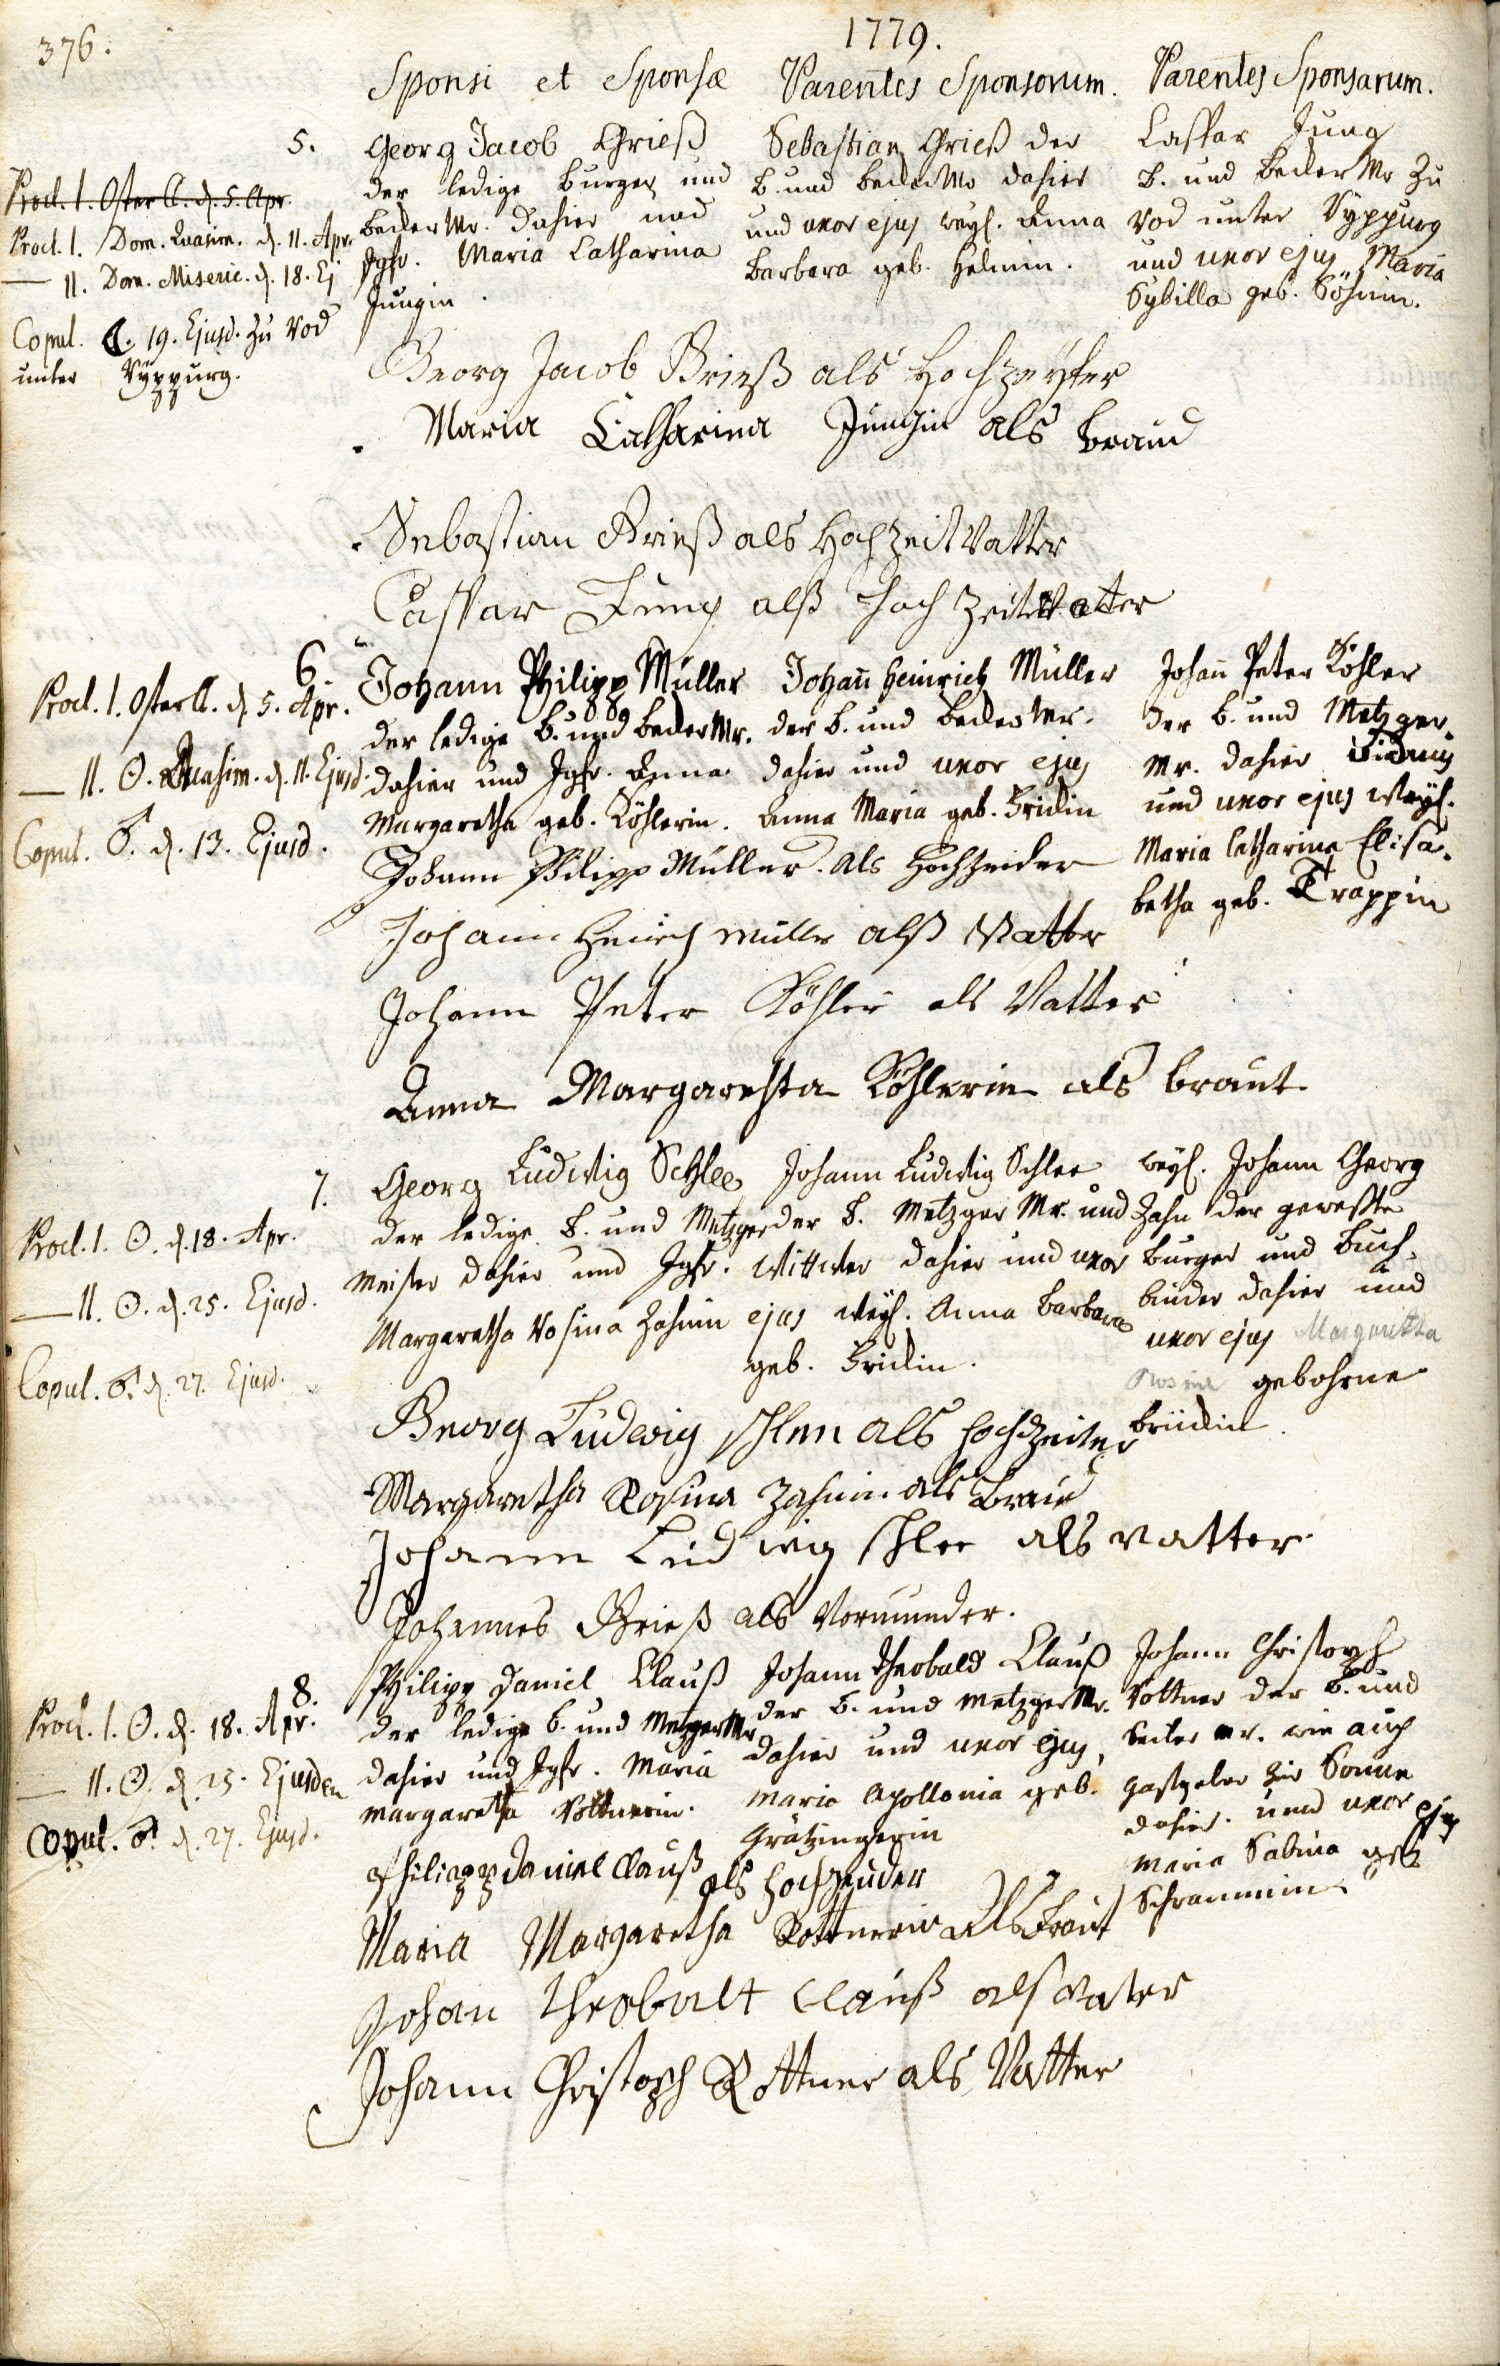 376.
1779.
Sponsi et Sponsæ
Parentes Sponsorum.
Parentes Sponsarum.
5.
Procl. 1. Oster C. d. 5. Apr.
Procl. I. Dom. Quasim. d. 11. Apr.
— II. Dom. Miseric. d. 18. Ej
Copul. C. 19. Ejusd. zu Rod
unter Rÿppurg.
Georg Jacob Grieß
der ledige Burger und
BeckerMr. dahier und
Jgfr. Maria Catharina
Jungin.
Sebastian Grieß der
B. und BeckerMr dahier
und uxor ejus weyl. Anna
Barbara geb. Helmin.
Caspar Jung
B. und Becker Mr zu
Rod unter Ryppurg
und uxor ejus Maria
Sybilla geb. Söhnin.
Georg Jacob Grieß als Hochzeyter
Maria Catharina Jungin als Braud
Sebastian Grieß als Hochzeit Vatter
Caspar Jung alß Hochzeit Vatter
6.
Procl. I. OsterC. d. 5. Apr.
— II. ☉. Quasim. d. 11. Ejusd.
Copul. ♂. d. 13. Ejusd.
Johann Philipp Müller
der ledige B. und BeckerMr.
dahier und Jgfr. Anna
Margaretha geb. Köhlerin.
Johann Heinrich Müller
der B. und Becker Mr.
dahier und uxor ejus
Anna Maria geb. Fridin
Johann Peter Köhler
der B. und Metzger
Mr. dahier
und uxor ejus weyl.
Maria Catharina Elisa-
betha geb. Trappin
Johann Philipp Müller. als Hochzeider
Johann Heinrich müller alß Vatter
Johann Peter Köhler als Vatter
Anna Margaretha Köhlerin als braut
7.
Procl. I. ☉. d. 18. Apr.
— II. ☉. d. 25. Ejusd.
Copul. ♂. d. 27. Ejusd.
Georg Ludwig Schlee
der ledige B. und Metzger
Meister dahier und Jgfr.
Margaretha Rosina Zahnin
Johann Ludwig Schlee
der B. Metzger Mr. und
Wittwer dahier und uxor
ejus weyl. Anna Barbara
geb. Fridin.
weyl. Johann Georg
Zahn der geweßte
Burger und Buch-
binder dahier und
uxor ejus Margaretha
Rosine gebohrne
Georg Ludwig schlee als hochzeiter
Margaretha Rosina Zahnin als Braud
Johann Ludwig schlee als vatter
Johannes Grieß als Vormunder.
8.
Procl. I. ☉. d. 18. Apr.
— II. ☉. d. 25. Ejusdem
Copul. ♂. d. 27. Ejusd.
Philipp Daniel Clauß
der ledige B. und MetzgerMr
dahier und Jgfr. Maria
Margaretha Rottnerin.
Johann Theobald Clauß
der B. und MetzgerMr.
dahier und uxor ejus,
Maria Apollonia geb.
Grätzingerin
Johann Christoph
Rottner der B. und
Mr. wie auch
Gastgeber zur Sonne
dahier. und uxor ejus
Maria Sabina geb.
Schrammin.
Philipp Daniel Clauß als Hochzeuder
Maria Margaretha Rottnerin Als Braut
Johan Theobalt Clauß als vater
Johann Christoph Rottner als Vatter